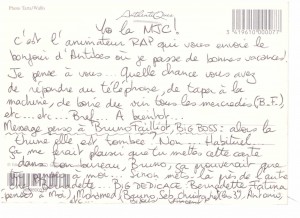 Photo Tom-Wallis
3419610000077
Yo la MJC!
c'est l'animateur RAP qui vous envoie le
bonjour d'Antibes où je passe de bonnes vacances!
Je pense à vous... Quelle chance vous avez
de répondre au téléphone, de taper à la
machine, de boire du vin tous les mercredis (B.F.)
etc... etc... Bref... A bientôt.
Message perso à Bruno, BIG BOSS: alors la
thune elle est tombée? Non... Habituel...
Ça me ferait plaisir que tu mettes cette carte
dans ton bureau, Bruno, ça prouverait que
à moi. Sinon mets la près de l'autre
BIG DEDICACE Bernadette, Fatima
pensez à moi, Mohamed, Bruno, Seb,